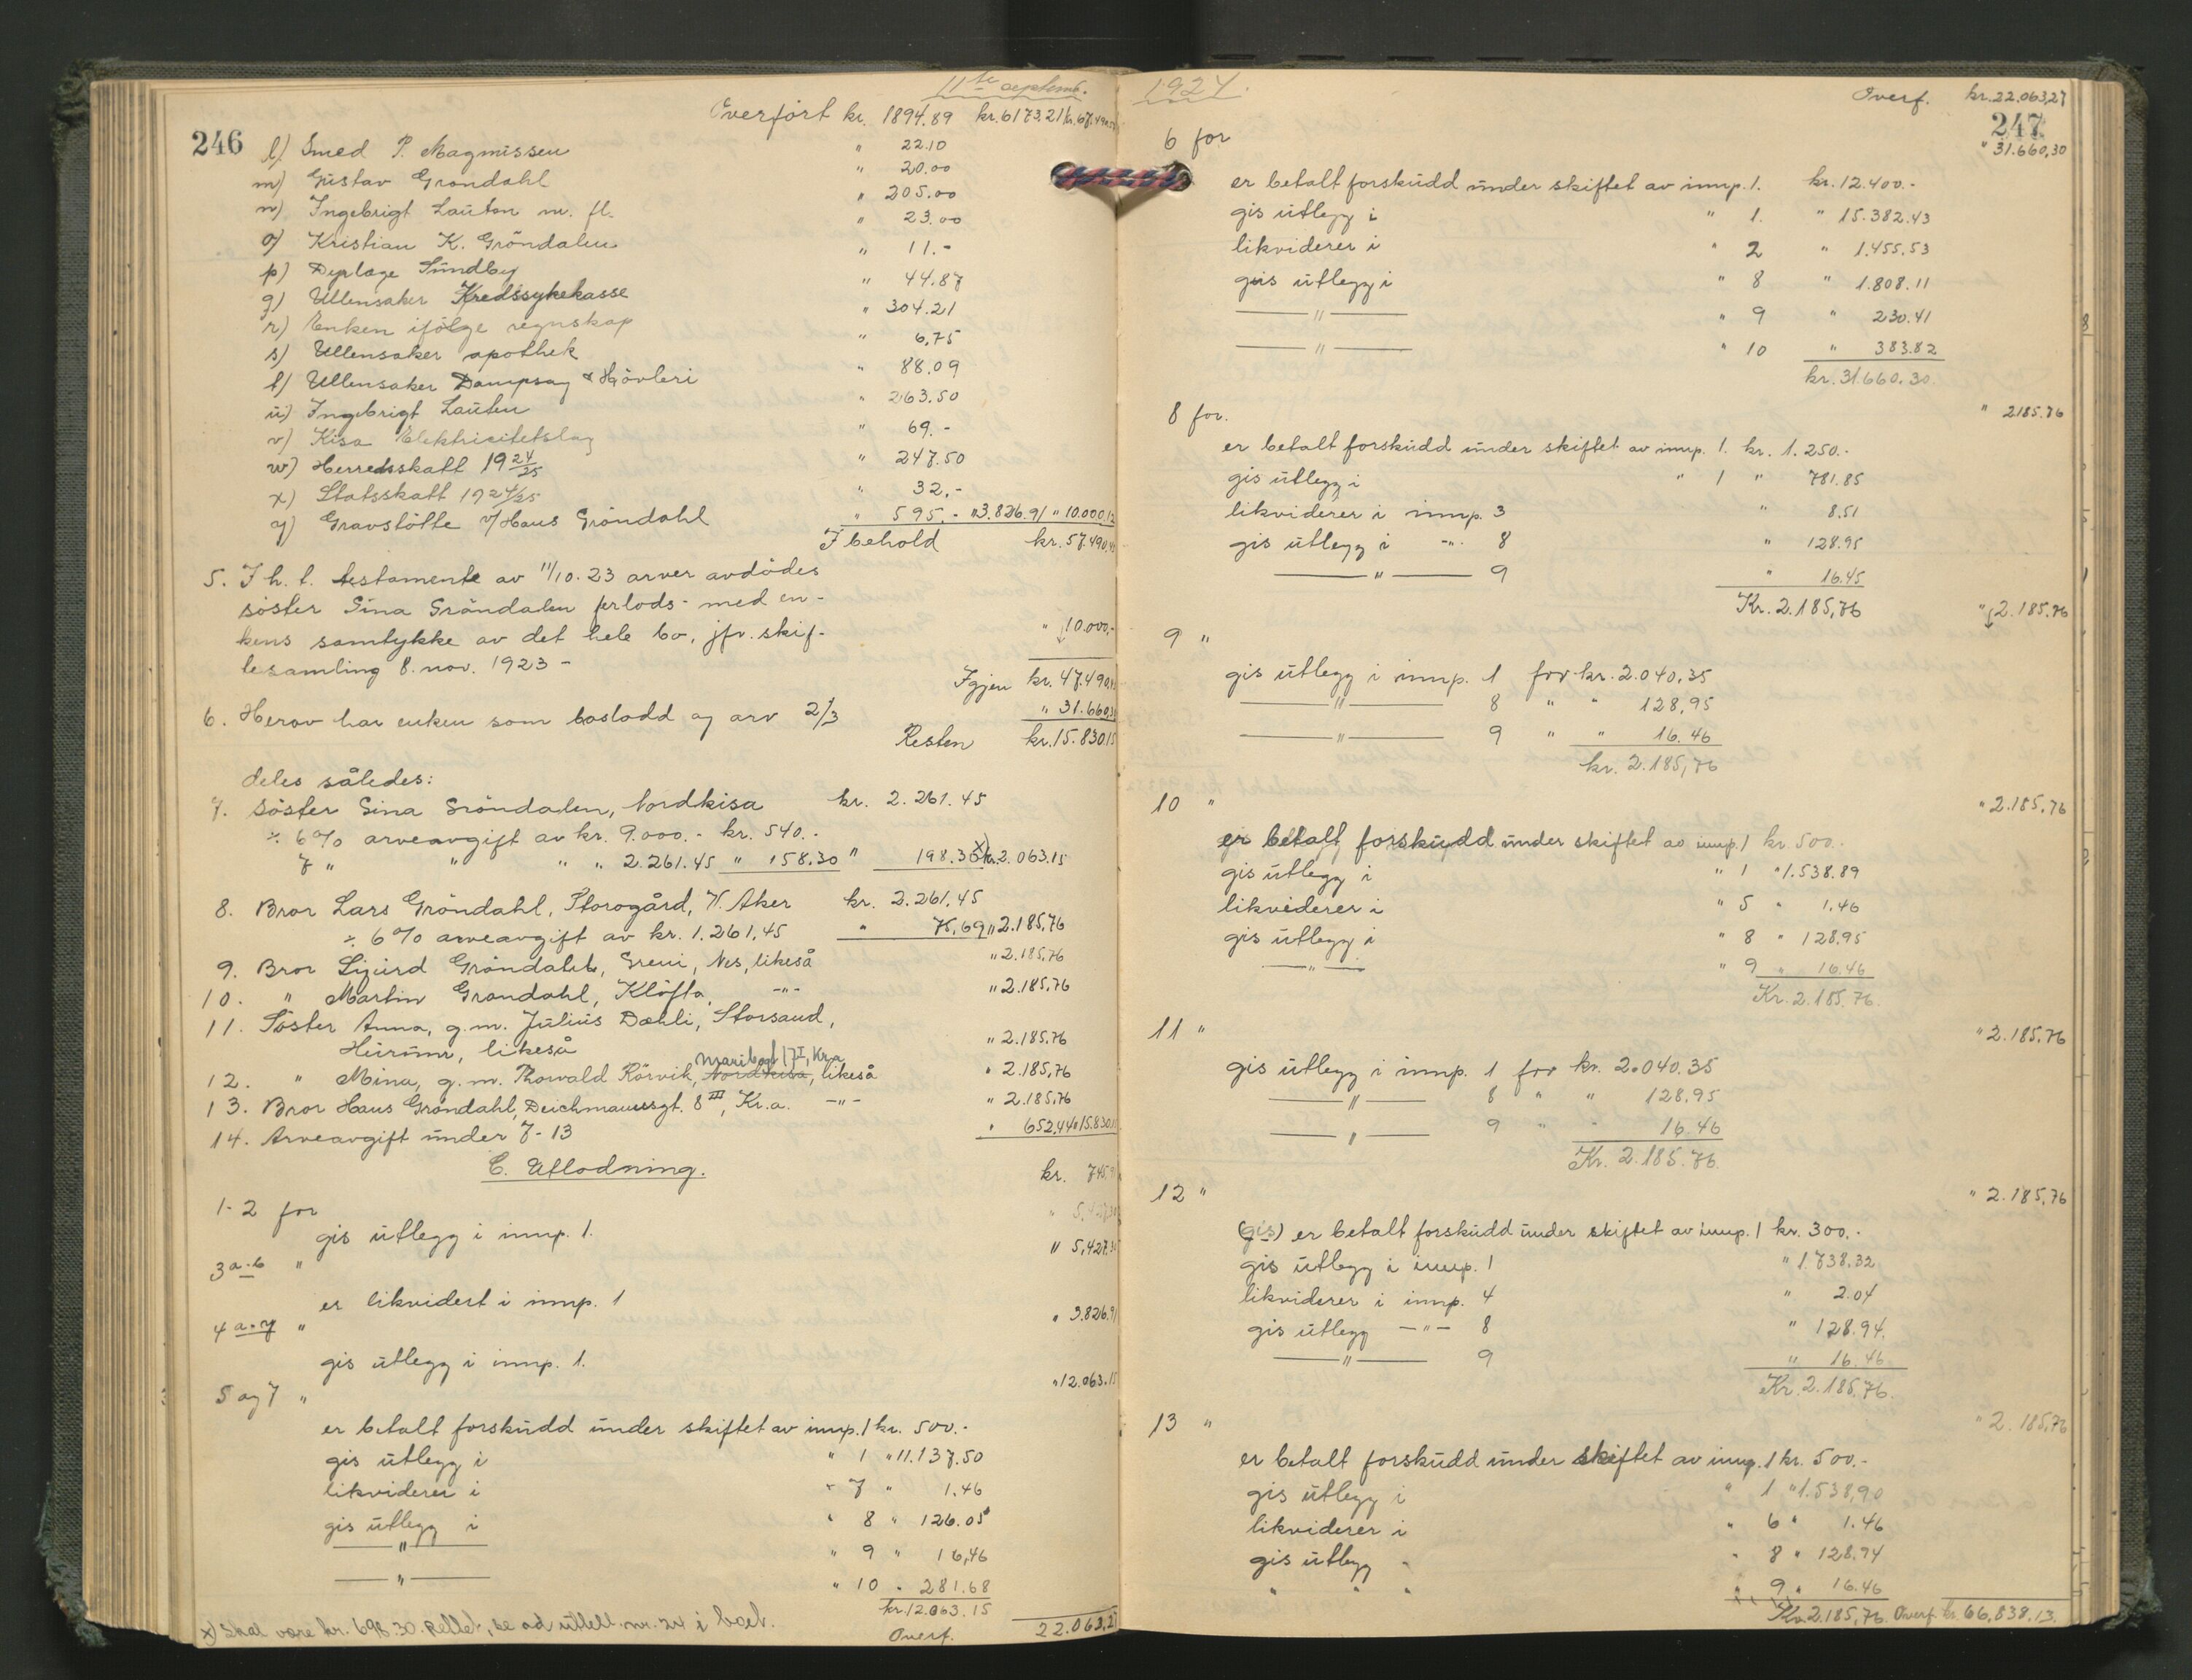 11te septemb.
246
Overført kr. 1894.89 kr. 6173.21 kr. 67.490.
l) Smed P. Magnussen " 22.10
m) Gustav Grøndahl " 20.00
n) Ingebrigt Lauten m. fl. " 205.00
o) Kristian K. Gröndalen " 23.00
p) Sundby " 11.-
q) Ullensaker Kredssykekasse " 44.87
r) Enken ifølge regnskap " 304.21
s) Ullensaker apothek " 6,75
t) Ullensaker Dampsag & Hövleri " 88.09
u) Ingebrigt Lauten " 263.50
v) Kisa Elektricitetslag " 69.-
w) Herredsskatt 1924/25 " 247.50
x) Statsskatt 1924/25 " 32.-
y) Gravstötte v/Hans Gröndahl " 595.- " 3.826.91 " 10.000.12
I behold kr. 57.490.
5. I h. t. testamente av 11/10.23 arver avdödes
söster Gina Gröndalen forlods - med en-
kens samtykke av det hele bo, jfr. skif-
tesamling 8. nov. 1923 - " 10.000,-
Igjen kr. 47.490.
6. Herav har enken som boslodd og arv 2/3 " 31.660.30
Resten kr. 15.830.15
deles således:
7. Söster Gina Gröndalen, Nordkisa kr. 2.261.45
÷ 6% arveavgift av kr. 9.000.- kr. 540.-
7 " " " " 2.261.45 " 158.30 " 198.30 x) kr. 2.063.15
8. Bror Lars Gröndahl, Storogård, V. Aker kr. 2.261.45
÷ 6% arveavgift av kr. 1.261.45 " 75,69 " 2.185,76
9. Bror Sigurd Gröndahl, Greni, Nes, likeså " 2.185.76
10. " Martin Grøndahl, Klöfta, -"- " 2.185.76
11. Söster Anna, g.m. Julius Dæhli, Storsand,
Hurum, likeså " 2.185.76
Maribogt 17 I, Kr.a
12. " Mina, g.m. Thorvald Rörvik, Nordkisa, likeså " 2.185,76
13. Bror Hans Gröndahl, Deichmannsgt. 8 III, Kr.a. -"- " 2.185.76
14. Arveavgift under 7-13 " 652.44 " 15.830.15
C. Utlodning.
1-2 for kr. 745.
gis utlegg i innp. 1. " 5,427.30
3 a-b " " 5,427.30
er likvidert i innp. 1
4 a-y " " 3.826.91
gis utlegg i innp. 1.
5 og 7 " " 12.063.15
er betalt forskudd under skiftet av innp. 1 kr. 500.-
gis utlegg i " 1 " 11.137.50
likviderer i " 7 " 1.46
gis utlegg i " 8 " 126.05
" " 9 " 16,46
" " 10 " 281.68
kr. 12.063.15
x) Skal være kr. 698.30 rettet, se ad utlodn. nr. 24 i boet. Overf. 22.063.27
1924.
Overf. kr. 22.063,27
247
6 for " 31.660,30
er betalt forskudd under skiftet av innp. 1. kr. 12.400.-
gis utlegg i " 1. " 15.382.43
likviderer i " 2 " 1.455.53
gis utlegg i " 8 " 1.808.11
" " 9 " 230.41
" " 10 " 383.82
kr. 31.660.30.
8 for. " 2185.76
er betalt forskudd under skiftet av innp. 1. kr. 1.250.-
gis utlegg i " 1 " 781.85
likviderer i innp. 3 " 8.51
gis utlegg i -"- 8 " 128.95
" 9 " 16.45
Kr. 2.185,76
9 " " 2.185.76
gis utlegg i innp. 1 for kr. 2.040,35
" 8 " " 128,95
" 9 " " 16.46
kr. 2.185,76
10 " " 2.185.76
er betalt forskudd under skiftet av innp. 1 kr. 500.-
gis utlegg i " 1 " 1.538.89
likviderer i " 5 " 1.46
gis utlegg i " 8 " 128.95
" " 9 " 16.46
Kr. 2.185.76.
11 " " 2.185.76
gis utlegg i innp. 1 for kr. 2.040.35
" 8 " " 128.95
" 9 " " 16.46
Kr. 2.185.76.
12 " " 2.185,76
(gis) er betalt forskudd under skiftet av innp. 1 kr. 300.-
gis utlegg i innp. 1 " 1.738.32
likviderer i innp. 4 " 2.04
gis utlegg -"- 8 " 128.94.
" 9 " 16.46
Kr. 2.185.76.
13 " " 2.185,76
er betalt forskudd under skiftet av innp. 1 kr. 500.-
gis utlegg i " 1 " 1.538,90
likviderer i " 6 " 1.46
gis utlegg " " 8 " 128.94
" " " " 9 " 16.46
Kr. 2.185,76. Overf. kr. 66,838.13.